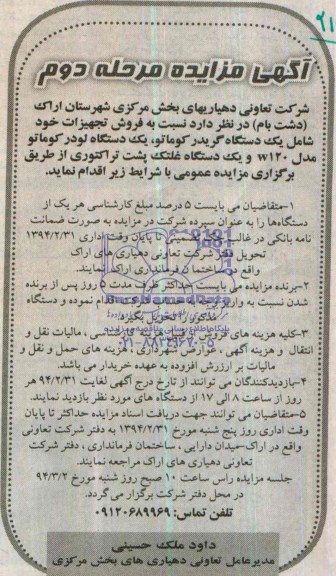 ۶۱
آگهی مزایده مرحله دوم
شرکت تعاونی دهیاریهای بخش مرکزی شهرستان اراک
(دشت بام) در نظر دارد نسبت به فروش تجهیزات خود
شامل یک دستگاه گریدر کوماتو، یک دستگاه لودر کوماتو
مدل W۱۲۰ و یک دستگاه غلتک پشت تراکتوری از طریق
برگزاری مزایده عمومی با شرایط زیر اقدام نماید.
۱-متقاضیان می بایست ۵ درصد مبلغ کارشناسی هر یک از
دستگاه‌ها را به عنوان سپرده شرکت در مزایده به صورت ضمانت
نامه بانکی در غالب تضمینی تا پایان وقت اداری ۱۳۹۴/۲/۳۱
تحویل دفتر شرکت تعاونی دهیاری های اراک
واقع در ساختمان فرمانداری اراک نمایند.
۲-برنده مزایده می بایست حداکثر ظرف مدت ۵ روز پس از برنده
شدن نسبت به واریز اقدام نموده و دستگاه
مذکور را تحویل بگیرد.
۳-کلیه هزینه های هزینه کارشناسی ، مالیات نقل و
انتقال و هزینه آگهی ، عوارض شهرداری ، هزینه های حمل و نقل و
مالیات بر ارزش افزوده به عهده خریدار می باشد.
۴-بازدیدکنندگان می توانند از تاریخ درج آگهی لغایت ۹۴/۲/۳۱ هر
روز از ساعت ۸ الی ۱۷ از دستگاه های مورد نظر بازدید نمایند.
۵-متقاضیان می توانند جهت دریافت اسناد مزایده حداکثر تا پایان
وقت اداری روز پنج شنبه مورخ ۱۳۹۴/۲/۳۱ به دفتر شرکت تعاونی
واقع در اراک-میدان دارایی ، ساختمان فرمانداری ، دفتر شرکت
تعاونی دهیاری های اراک مراجعه نمایند.
جلسه مزایده راس ساعت ۱۰ صبح روز شنبه مورخ ۹۴/۳/۲
در محل دفتر شرکت برگزار می گردد.
تلفن تماس: ۰۹۱۲۰۶۸۹۹۶۹
داود ملک حسینی
مدیرعامل تعاونی دهیاری های بخش مرکزی